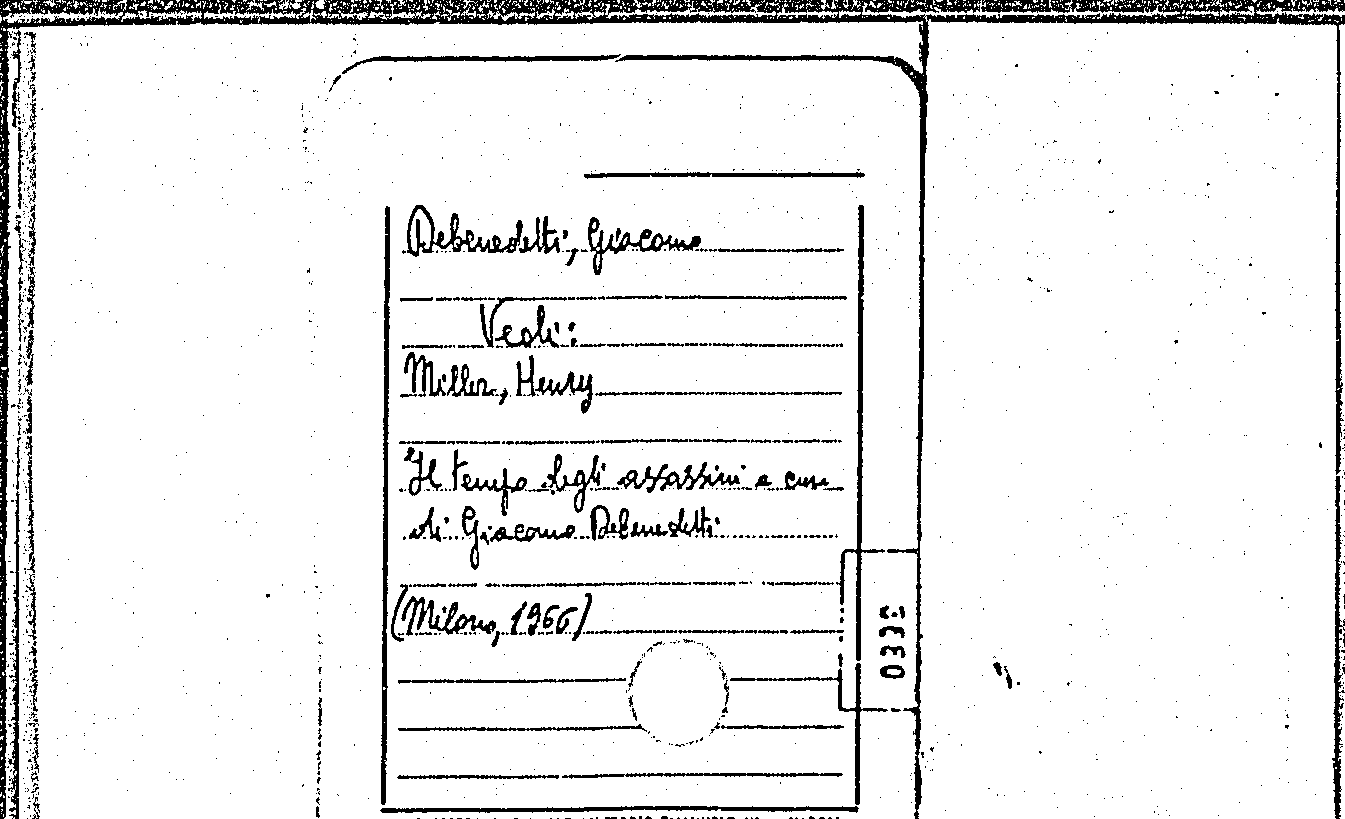 Debenedetti, Giacomo
Vedi:
Miller, Henry
"Il tempo degli assassini a cura
di Giacomo Debenedetti
(Milano, 1966)